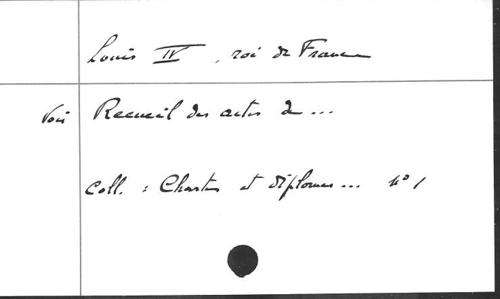 Louis IV, roi de France
Voir Recueil des actes de ...
Coll. : Chartes et diplomes... n° 1